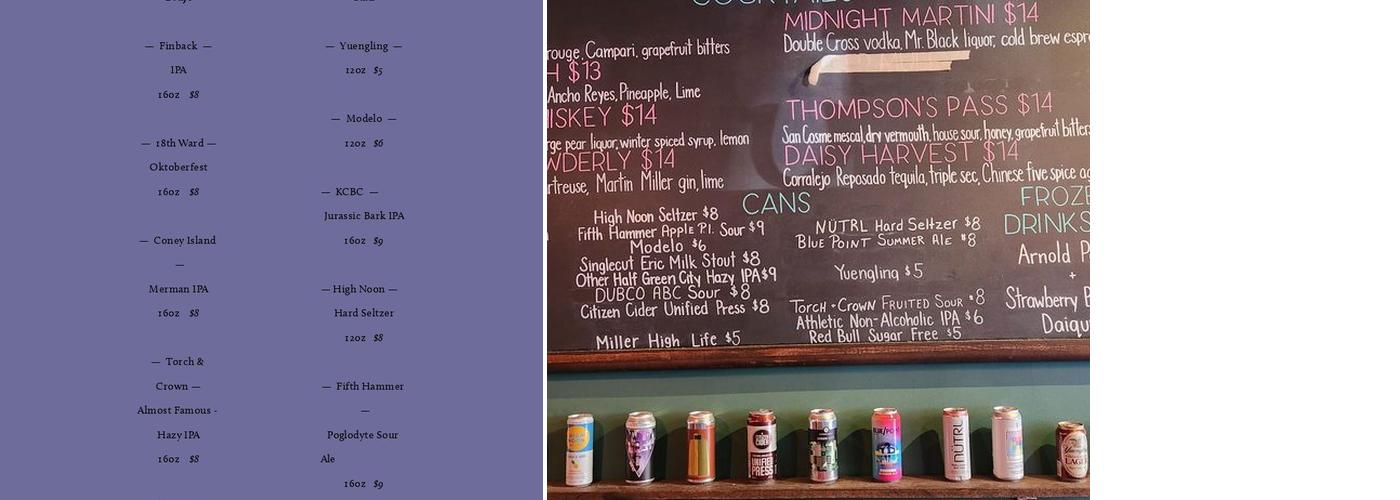 — Finback —
IPA
16oz $8
— 18th Ward —
Oktoberfest
16oz $8
— Coney Island
—
Merman IPA
16oz $8
— Torch &
Crown —
Almost Famous -
Hazy IPA
16oz $8
— Yuengling —
12oz $5
— Modelo —
12oz $6
— KCBC —
Jurassic Bark IPA
16oz $9
— High Noon —
Hard Seltzer
12oz $8
— Fifth Hammer
—
Poglodyte Sour
Ale
16oz $9
rouge, Campari, grapefruit bitters
H $13
Ancho Reyes, Pineapple, Lime
ISKEY $14
rge pear liquor, winter spiced syrup, lemon
WDERLY $14
rtreuse, Martin Miller gin, lime
MIDNIGHT MARTINI $14
Double Cross vodka, Mr. Black liquor, cold brew espre
THOMPSON'S PASS $14
San Cosme mescal, dry vermouth, house sour, honey, grapefruit bitters
DAISY HARVEST $14
Corralejo Reposado tequila, triple sec, Chinese five spice ag
CANS
High Noon Seltzer $8
Fifth Hammer Apple P.I. Sour $9
Modelo $6
Singlecut Eric Milk Stout $8
Other Half Green City Hazy IPA $9
DUBCO ABC Sour $8
Citizen Cider Unified Press $8
Miller High Life $5
NÜTRL Hard Seltzer $8
Blue Point Summer Ale $8
Yuengling $5
Torch + Crown Fruited Sour $8
Athletic Non-Alcoholic IPA $6
Red Bull Sugar Free $5
FROZE
DRINKS
Arnold P
+
Strawberry B
Daiqu
UNIFIED
PRESS
NÜTRL
LAGE